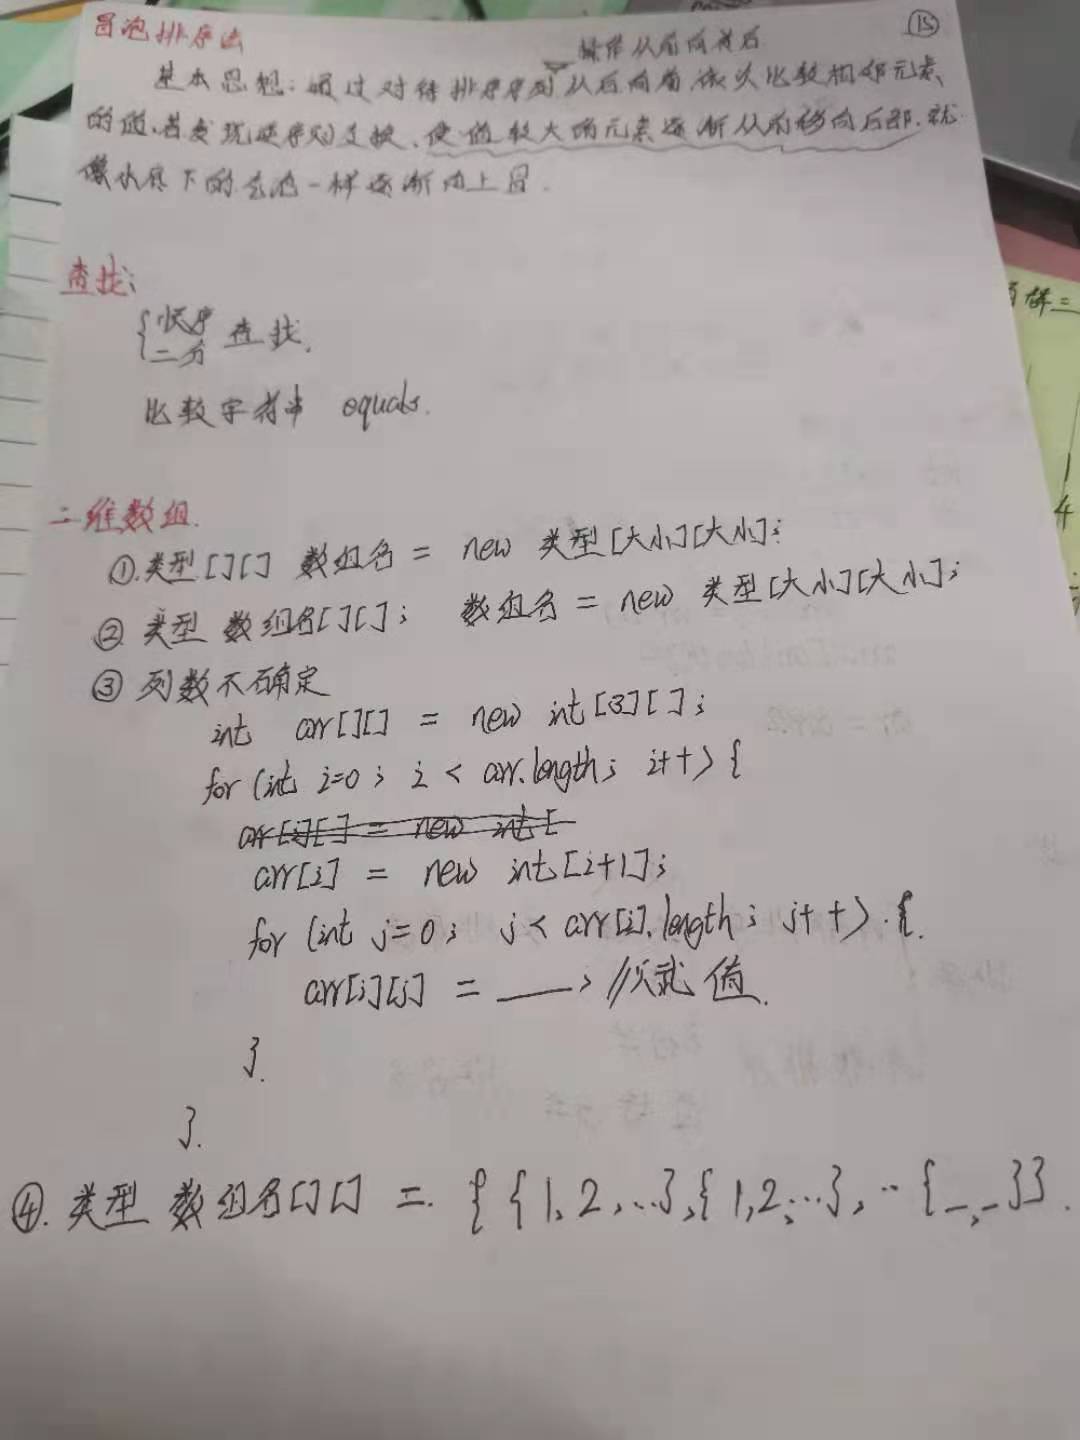 冒泡排序法
⑮
操作从前向前后
基本思想:通过对待排序序列从后向前依次比较相邻元素
的值,若发现逆序则交换,使值较大的元素逐渐从前移向后部.就
像水底下的气泡一样逐渐向上冒.
查找:
{顺序
二分 查找.
比较字符串 equals.
二维数组.
①.类型[][] 数组名 = new 类型[大小][大小];
② 类型 数组名[][]; 数组名 = new 类型[大小][大小];
③ 列数不确定
int arr[][] = new int[3][];
for (int i=0; i < arr.length; i++) {
arr[i][] = new int[
arr[i] = new int[i+1];
for (int j=0; j < arr[i].length; j++) {.
arr[i][j] = ___; //赋值.
}.
}.
④. 类型 数组名[][] = {{1,2,...},{1,2,...},..{_,_}}.